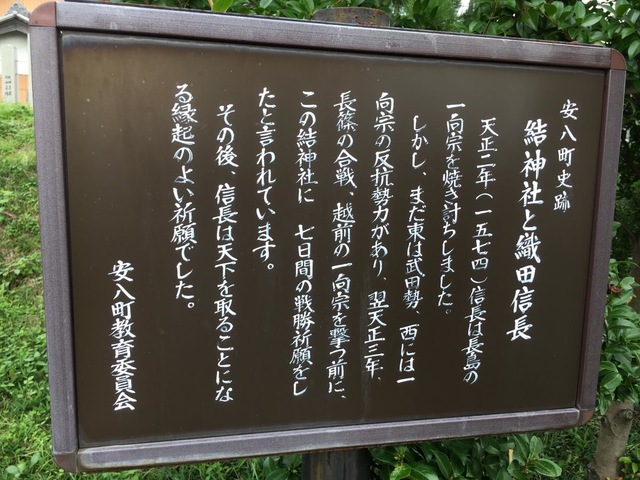 安八町史跡
結神社と織田信長
天正二年(一五七四)信長は長島の
一向宗を焼き討ちしました。
しかし、まだ東は武田勢、西には一
向宗の反抗勢力があり、翌天正三年、
長篠の合戦、越前の一向宗を撃つ前に、
この結神社に 七日間の戦勝祈願をし
たと言われています。
その後、信長は天下を取ることにな
る縁起のよい祈願でした。
安八町教育委員会